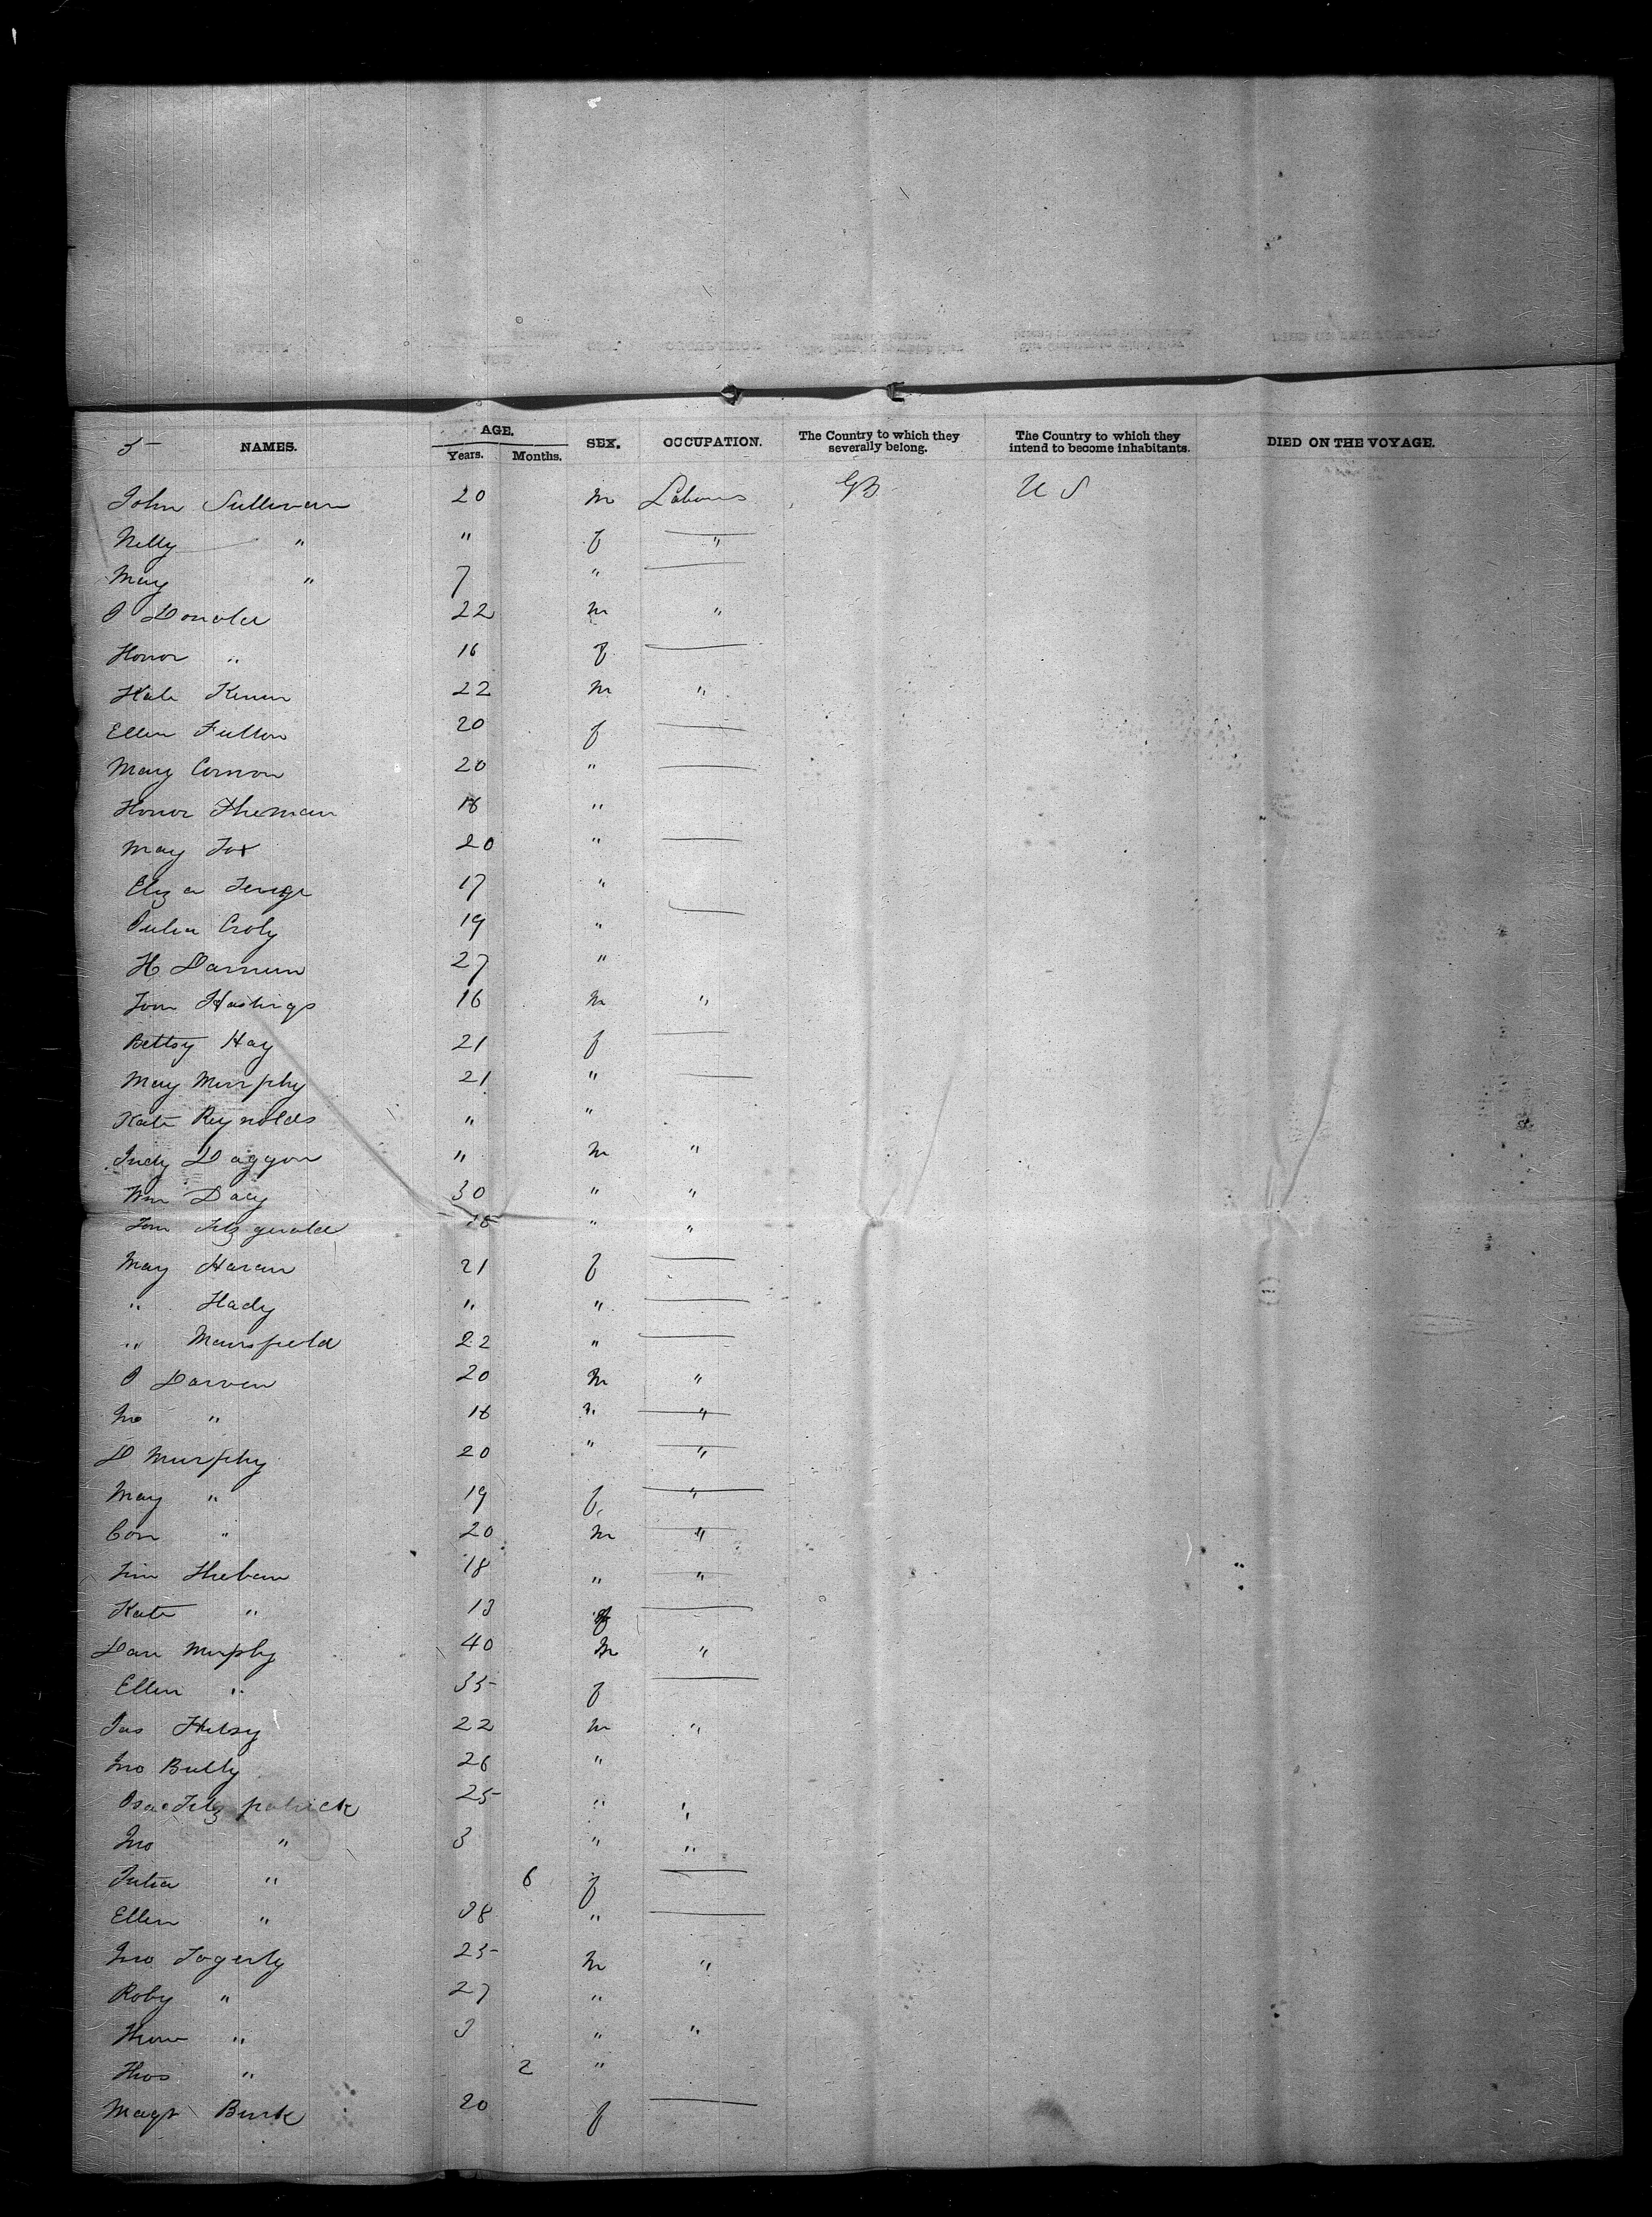 5 NAMES. AGE. SEX. OCCUPATION. The Country to which they severally belong. The Country to which they intend to become inhabitants. DIED ON THE VOYAGE.
Years. Months.
John Sullivan 20 m Labours GB U S
Nelly " " f "
May " 7 "
P Donald 22 m "
Honor " 16 f
Kate 22 m "
Ellen Fulton 20 f
Mary Connon 20 "
Honor 18 "
May Fox 20 "
Eliza 17 "
Julia Croly 19 "
H 27 "
Tom Hastings 16 m "
Bettsy Hay 21 f
May Murphy 21 "
Kate Reynolds " "
Judy Daggon " m "
Wm Dacy 30 " "
Tom Fitzgerald " "
May Haran 21 f
" Hady " "
" Mansfield 22 "
P Darven 20 m "
Jno " 18 " "
D Murphy 20 " "
May " 19 f "
Con " 20 m "
Jim 18 " "
Kate " 13 f
Dan Murphy 40 m "
Ellen " 35 f
Jas 22 m "
Jno Bully 26 "
Fitzpatrick 25 " "
Jno " 3 " "
Julia " 6 f
Ellen " 38 "
Jno Fogerty 25 m "
Roby " 27 "
" 3 " "
Thos " 2 "
Magt Burk 20 f